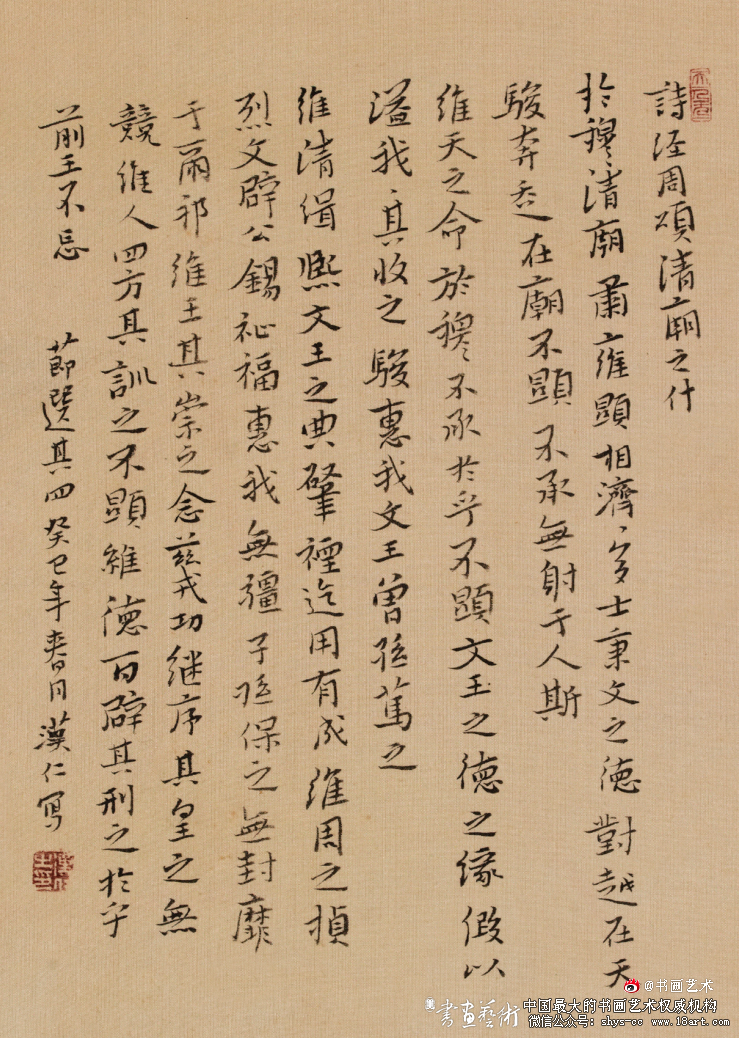 詩经周頌清廟之什
於穆清廟肅雍顯相濟〻多士秉文之德對越在天
駿奔走在廟不顯不承無射于人斯
維天之命於穆〻不承於乎不顯文王之德之緣假以
溢我我其收之駿惠我文王曾孫篤之
維清緝熙文王之典肇禋迄用有成維周之楨
烈文辟公錫祉福惠我無疆子孫保之無封靡
于爾邦維王其崇之念茲戎功继序其皇之無
競維人四方其訓之不顯維德百辟其刑之於乎
前王不忘
節選其四癸巳年春月漢仁寫
@书画艺术
書畫藝術
中国最大的书画艺术权威机构
微信公众号：shys-cc www.18art.com